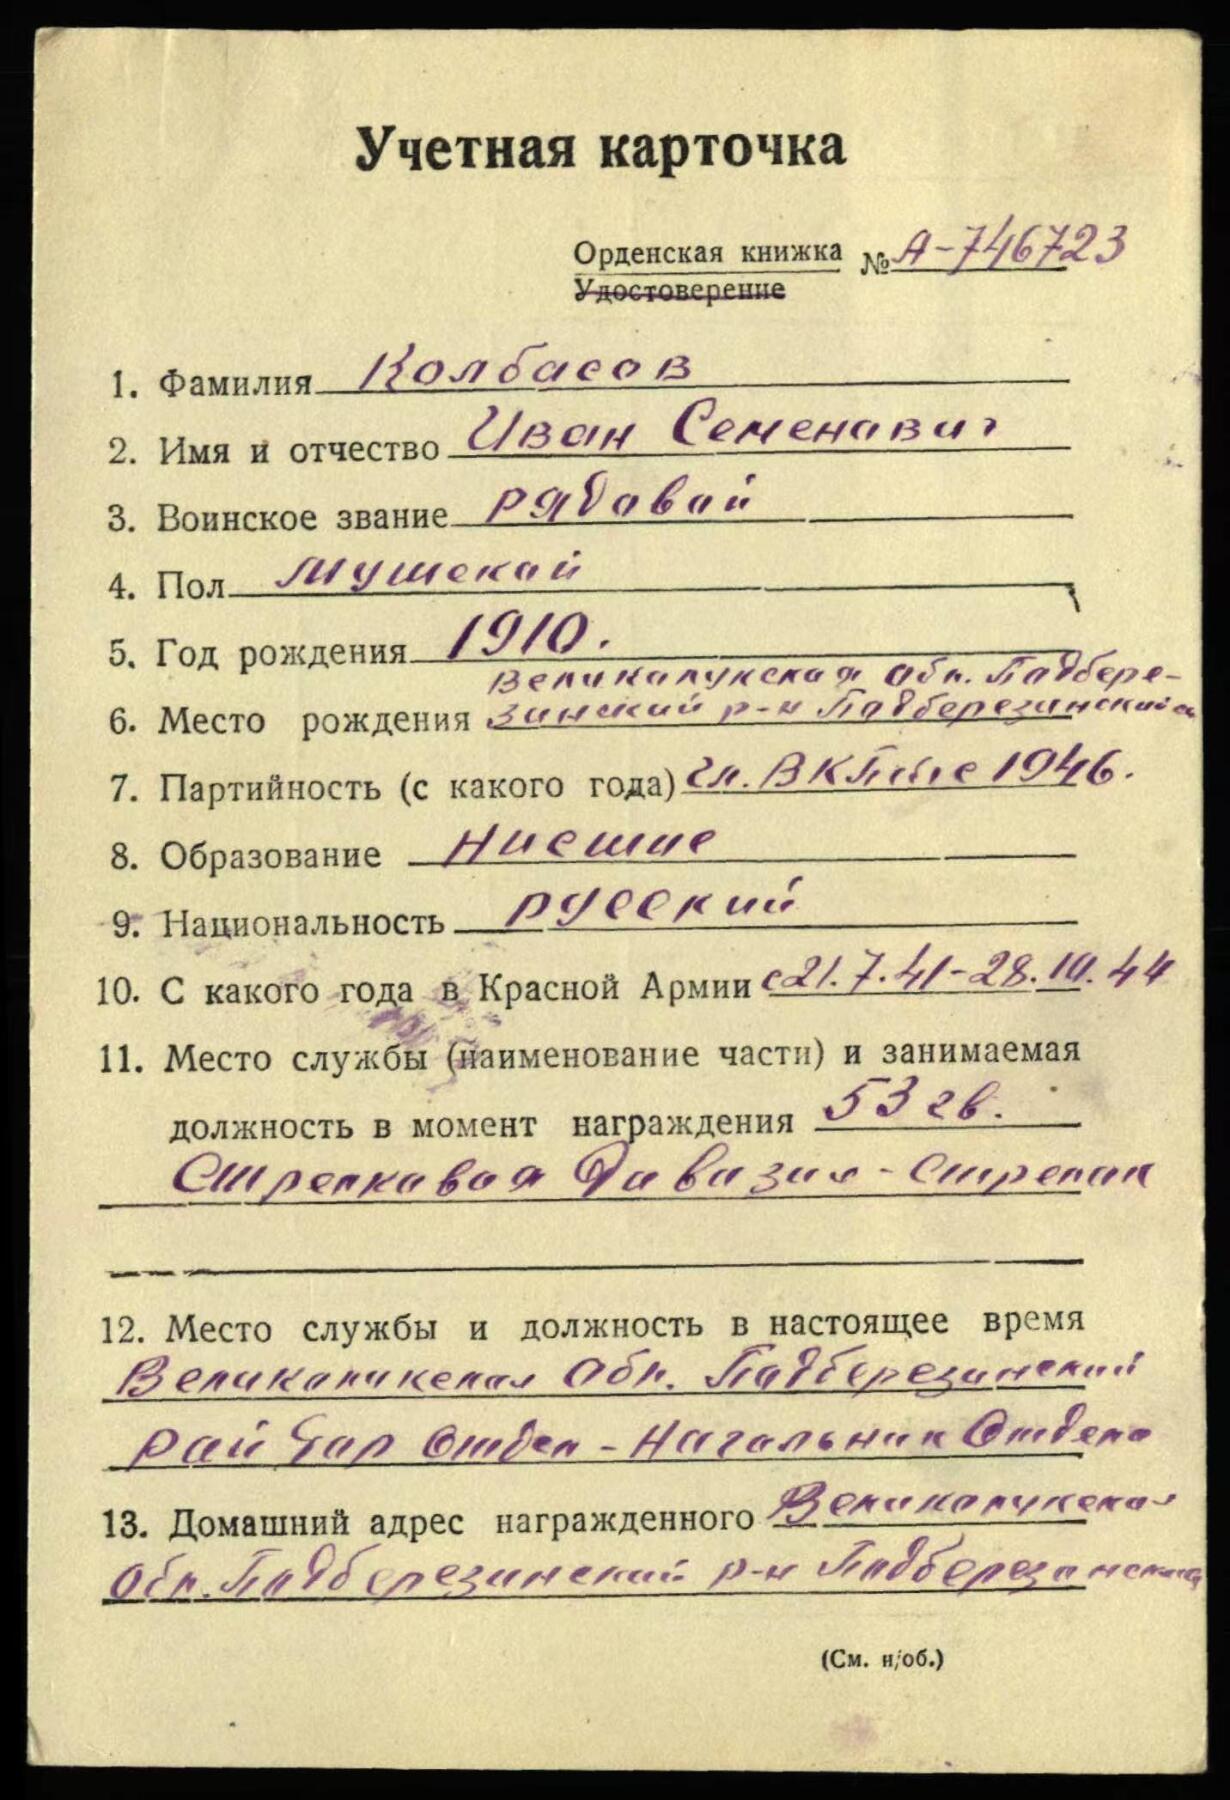 Учетная карточка
Орденская книжка № А-746723
Удостоверение
1. Фамилия Колбасов
2. Имя и отчество Иван Семенавич
3. Воинское звание рядавай
4. Пол Мушскай
5. Год рождения 1910.
Великалукская обл. Падбере-
6. Место рождения зинский р-н Падберезинский с
7. Партийность (с какого года) чл. ВКП/б/ с 1946.
8. Образование Нисшие
9. Национальность русский
10. С какого года в Красной Армии с 21.7.41-28.10.44
11. Место службы (наименование части) и занимаемая
должность в момент награждения 53 гв.
Стрелкавая Дивизия - Стрелак
12. Место службы и должность в настоящее время
Великалукская Обл. Падберезинский
рай Отдел - Начальник Отдела
13. Домашний адрес награжденного Великалукская
Обл. Падберезинский р-н Падберезинский
(См. н/об.)